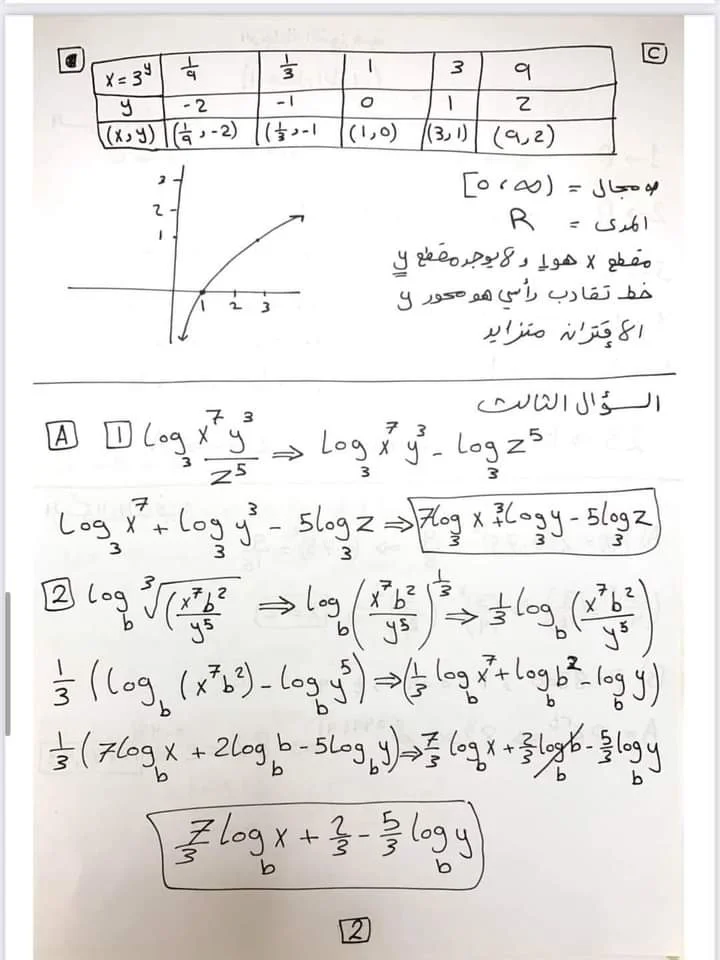 C
x = 3^y | 1/9 | 1/3 | 1 | 3 | 9
y | -2 | -1 | 0 | 1 | 2
(x,y) | (1/9, -2) | (1/3, -1 | (1,0) | (3,1) | (9,2)
مجال = (∞ ، 0]
المدى = R
مقطع x هو 1 و لا يوجد مقطع y
خط تقارب رأسي هو محور y
الإقتران متزايد
3
2
1
1 2 3
السؤال الثالث
A 1 log₃ x⁷y³/z⁵ ⇒ log₃ x⁷y³ - log₃ z⁵
log₃ x⁷ + log₃ y³ - 5log₃ z ⇒ 7log₃ x + 3log₃ y - 5log₃ z
2 log_b ³√(x⁷b²/y⁵ ⇒ log_b (x⁷b²/y⁵)^(1/3) ⇒ 1/3 log_b (x⁷b²/y⁵)
1/3 (log_b (x⁷b²) - log_b y⁵) ⇒ (1/3 log_b x⁷ + log_b b² - log_b y)
1/3 (7log_b x + 2log_b b - 5log_b y) ⇒ 7/3 log_b x + 2/3 log_b b - 5/3 log_b y
7/3 log_b x + 2/3 - 5/3 log_b y
2